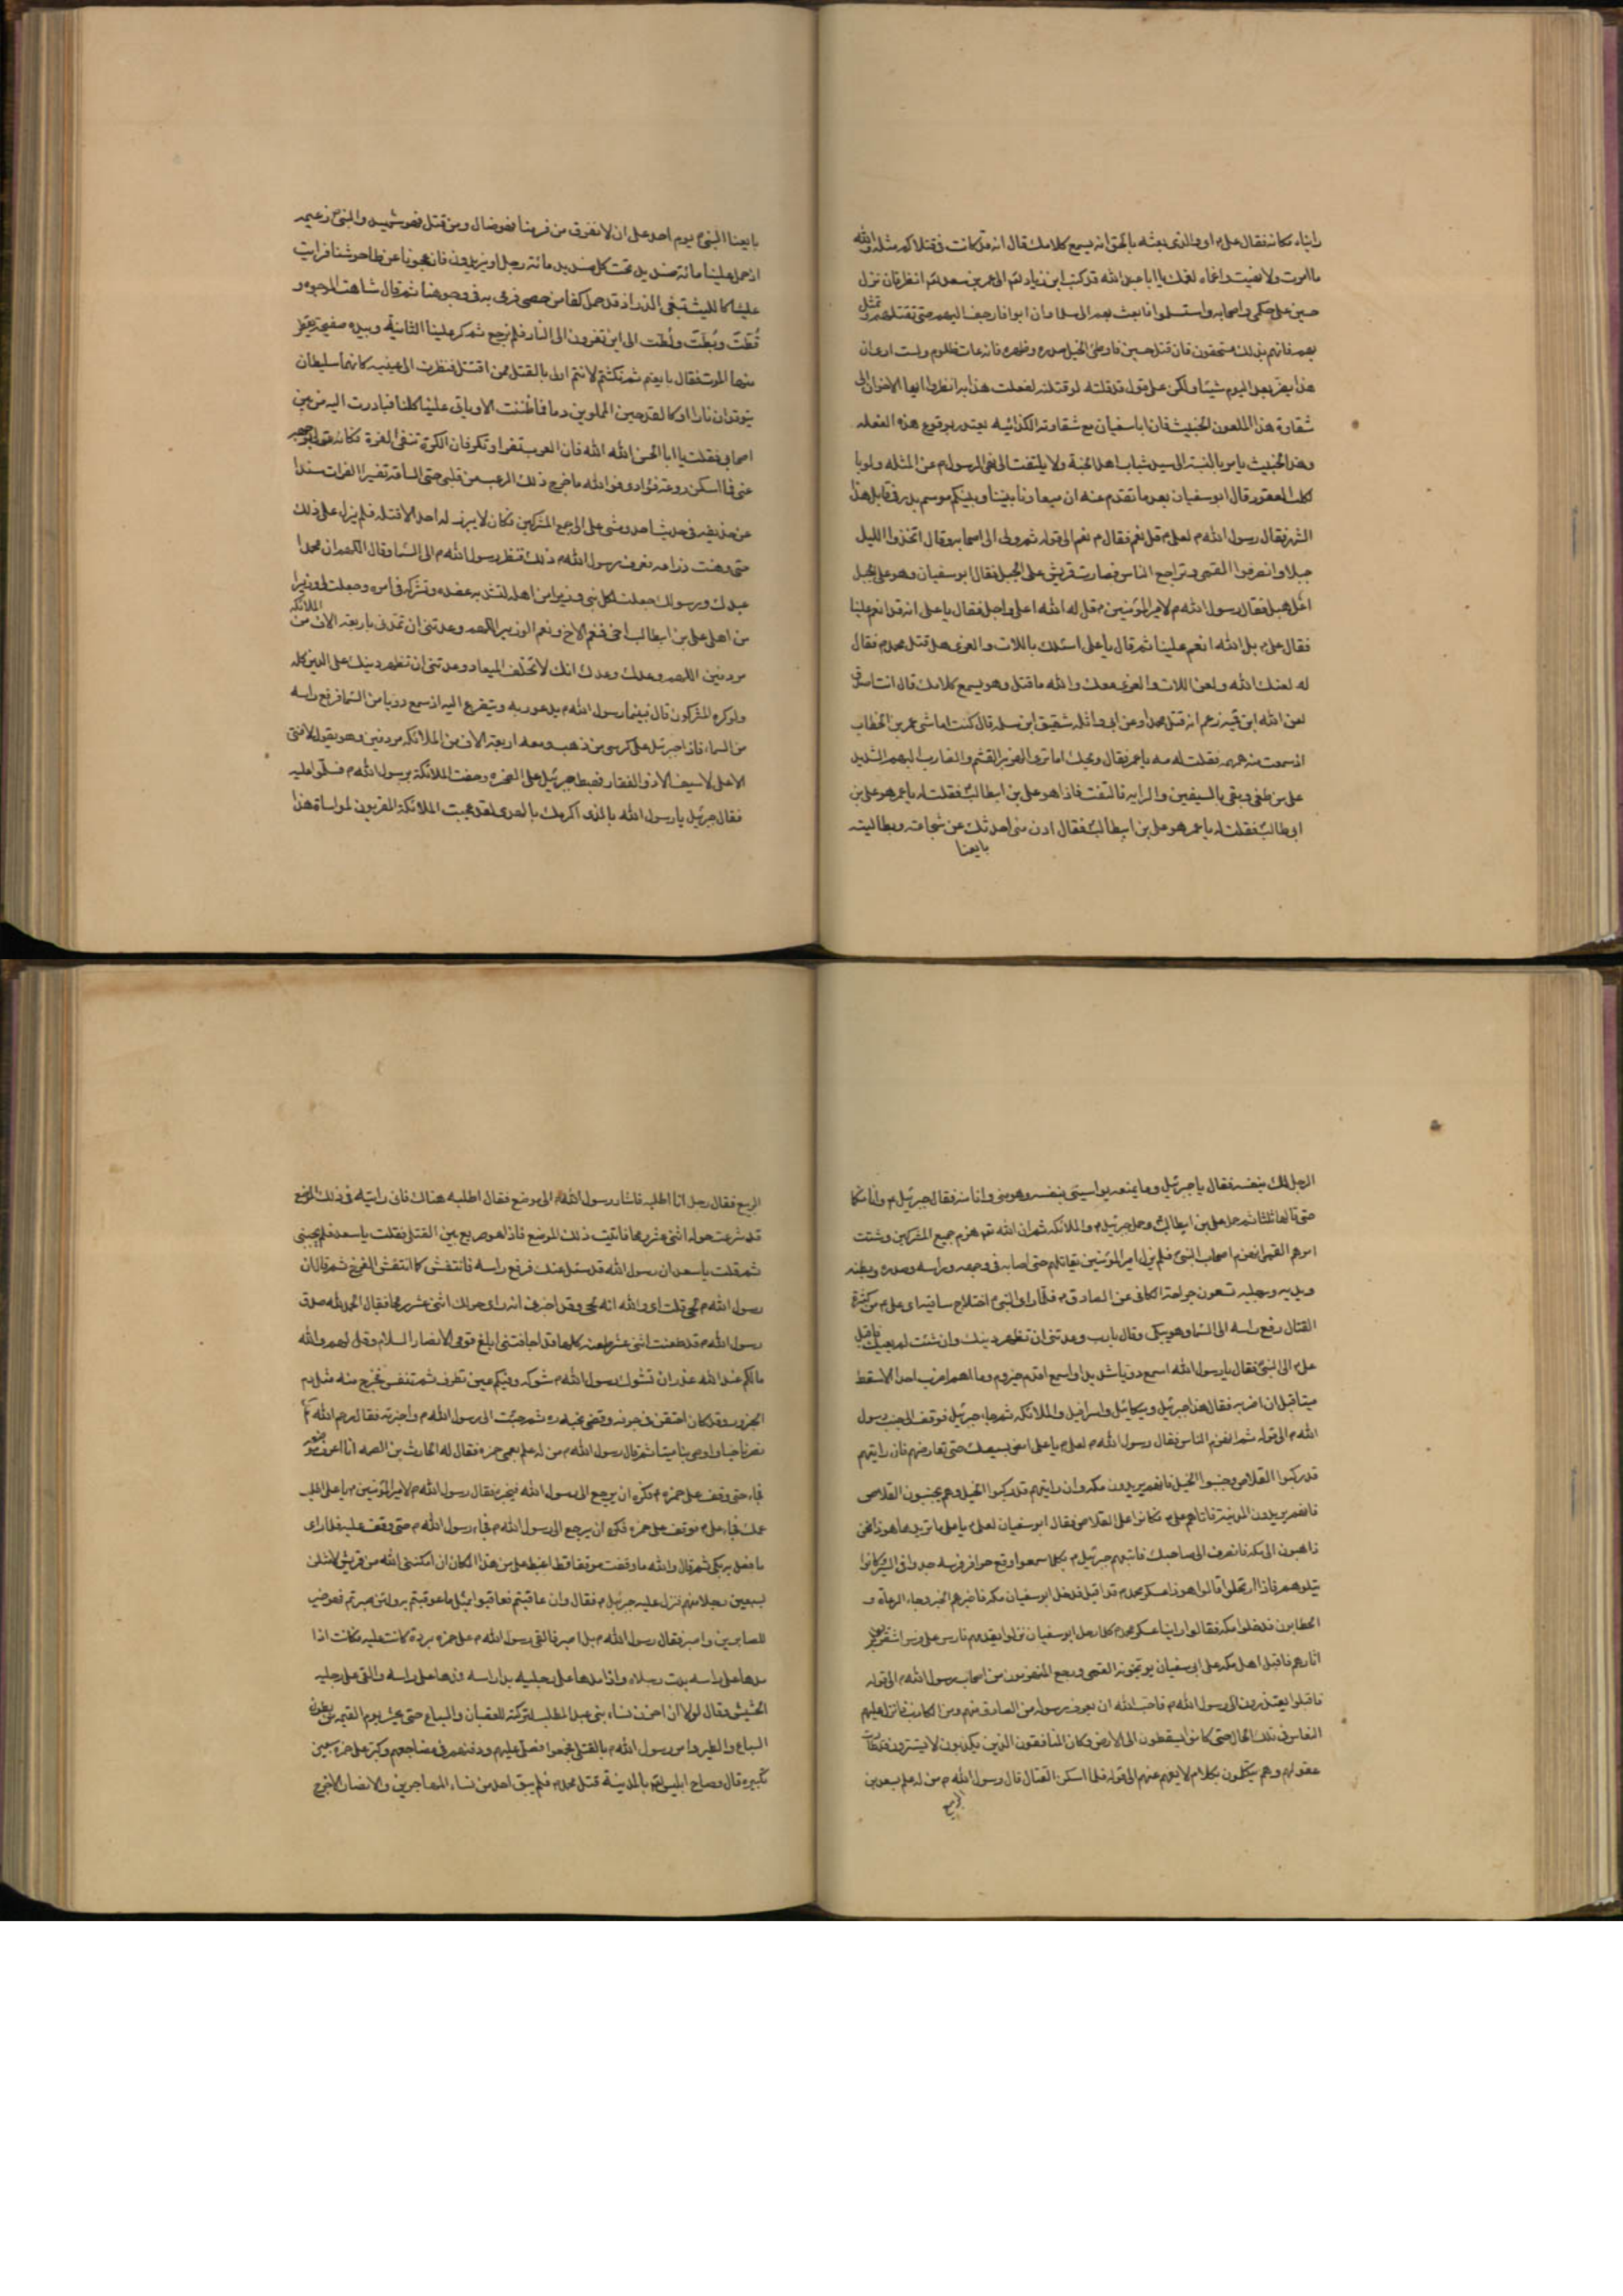 فقال علي م او والذي بعثه بالحق انه يسمع كلامك قال انه قد كانت في قتلاكم مثله والله
ما امرت ولا نهيت يا ابا عبد الله قد كتب ابن زياد الى عمر بن سعد انظر فان نزل
حسين على حكمي واصحابه واستسلموا فابعث بهم الى سلما وان ابوا فازحف اليهم حتى تقتلهم وتمثل
بهم فانهم بذلك مستحقون فان قتل حسين فاوطئ الخيل صدره وظهره فانه عات ظلوم ولست ارى ان
هذا يضر بعد اليوم شيئا ولكن على قول قد قلته لو قتلته لفعلت هذا به انظروا ايها الاخوان الى
شقاوة هذا الملعون الخبيث فان ابا سفيان مع شقاوته يعتذر بوقوع هذه الفعله
وهذا الخبيث يامر بالنسبة الى سيد شباب اهل الجنة ولا يلتفت الى نهي الرسول م عن المثله ولو بالكلب
العقور قال ابو سفيان بعد ما تقدم عنه ان ميعادنا بيننا وبينكم موسم بدر في قابل هذا
الشهر فقال رسول الله م لعلي م قل نعم فقال م نعم الى قوله ثم ولى الى اصحابه وقال اتخذوا الليل
جملا وانصرفوا القمي وتراجع الناس فصارت قريش على الجبل فقال ابو سفيان وهو على الجبل
اعل هبل فقال رسول الله م لامير المؤمنين م قل له الله اعلى واجل فقال يا علي انه قد انعم علينا
فقال علي م بل الله انعم علينا ثم قال يا علي اسئلك باللات والعزى هل قتل محمد م فقال
له لعنك الله ولعن اللات والعزى معك والله ما قتل وهو يسمع كلامك قال انت اصدق
لعن الله ابن قميه زعم انه قتل محمدا وعن ابي واثله شقيق ابن سلمه قال كنت اماشي عمر بن الخطاب
اذ سمعت منه همهمه فقلت له مه يا عمر فقال ويحك اما ترى الهزبر القثم والضارب البهم الشديد
على من طغى وبغى بالسيفين والرايه فالتفت فاذا هو علي بن ابيطالب فقلت له يا عمر هو علي بن
ابي طالب فقلت له يا عمر هو علي بن ابيطالب فقال ادن مني احدثك عن شجاعته وبطالته
بايعنا
بايعنا النبي م يوم احد على ان لا نفر ومن فر منا فهو ضال ومن قتل فهو شهيد والنبي زعيمه
اذ حمل علينا مائة صنديد تحت كل صنديد مائة رجل او يزيدون فازعجونا عن طاحونتنا فرايت
عليا كالليث يتقي الذر اذ قد حمل كفا من حصى فرمى به في وجوهنا ثم قال شاهت الوجوه و
قطت وبطت ولطت الى اين تفرون الى النار فلم نرجع ثم كر علينا الثانية وبيده صفيحة يقطر
منها الموت فقال بايعتم ثم نكثتم لانتم اولى بالقتل ممن اقتل فنظرت الى عينيه كانهما سليطان
يتوقدان نارا او كالقدحين المملوين دما فما ظننت الا وياتي علينا كلنا فبادرت اليه من بين
اصحابي فقلت يا ابا الحسن الله الله فان العرب تفر وتكر فان الكرة تنفي الفرة فكانه
عني فما اسكن روعة فؤادي فوالله ما خرج ذلك الرعب من قلبي حتى الساعة تفسير الفرات مسندا
عن حذيفه في حديث احد ومشى علي الى جمع المشركين فكان لا يبرز له احد الا قتله فلم يزل على ذلك
حتى وهنت ذراعه فعرف رسول الله م ذلك فنظر رسول الله م الى السماء وقال اللهم ان محمدا
عبدك ورسولك جعلت لكل نبي وزيرا من اهله لتشد به عضده وتشركه في امره وجعلت لي وزيرا
من اهلي علي بن ابيطالب اخي فنعم الاخ ونعم الوزير اللهم وعدتني ان تمدني باربعة الاف من الملائكة
مردفين اللهم وعدك وعدك انك لا تخلف الميعاد وعدتني ان تظهر دينك على الدين كله
ولو كره المشركون قال فبينما رسول الله م يدعو ربه ويتضرع اليه اذ سمع دويا من السماء فرفع راسه
من السماء فاذا جبرئيل على كرسي من ذهب ومعه اربعة الاف من الملائكه مردفين وهو يقول لا فتى
الا علي لا سيف الا ذو الفقار فهبط جبرئيل على الصخره وحفت الملائكة برسول الله م فسلموا عليه
فقال جبرئيل يا رسول الله بالذي اكرمك بالهدى لقد عجبت الملائكة المقربون لمواساة هذا
الرجل لك بنفسه فقال يا جبرئيل وما يمنعه يواسيني بنفسه وهو مني وانا منه فقال جبرئيل م وانا منكما
حتى قالها ثلثا ثم حمل علي بن ابيطالب وحمل جبرئيل م والملائكه ثم ان الله تع هزم جميع المشركين وشتت
امرهم القمي انهزم اصحاب النبي م فلم يزل امير المؤمنين يقاتلهم حتى اصابه في وجهه وراسه وصدره وبطنه
ويديه ورجليه تسعون جراحة الكافي عن الصادق م فلما راى النبي م اختلاج ساقيه اي علي م من كثرة
القتال رفع راسه الى السماء وهو يبكي وقال يا رب وعدتني ان تظهر دينك وان شئت لم يعيك فاقبل
علي م الى النبي فقال يا رسول الله اسمع دويا شديدا واسمع اقدم حيزوم وما اهم اضرب احدا الا سقط
ميتا قبل ان اضربه فقال هذا جبرئيل وميكائيل واسرافيل والملائكه ثم جاء جبرئيل فوقف الى جنب رسول
الله م الى قوله ثم انهزم الناس فقال رسول الله م لعلي م يا علي امض بسيفك حتى تعارضهم فان رايتهم
قد ركبوا القلاص وجنبوا الخيل فانهم يريدون مكه وان رايتهم قد ركبوا الخيل وهم يجنبون القلاص
فانهم يريدون المدينة فاتاهم علي م فكانوا على القلاص فقال ابو سفيان لعلي م يا علي ما تريد ها هو ذا نحن
ذاهبون الى مكه فانصرف الى صاحبك فاتبعهم جبرئيل م فكلما سمعوا وقع حوافر فرسه جدوا في السير وكانوا
يتلوهم فاذا ارتحلوا قالوا هو ذا عسكر محمد م قد اقبل فدخل ابو سفيان مكه فاخبرهم الخبر وجاء الرعاة و
الحطابون فدخلوا مكه فقالوا راينا عسكر محمد م كلما رحل ابو سفيان نزلوا يقدمهم فارس على فرس اشقر
اثارهم فاقبل اهل مكه على ابي سفيان يوبخونه القمي ورجع المنهزمون من اصحاب رسول الله م الى قوله
فاقبلوا يعتذرون الى رسول الله م فاحب الله ان يعرف رسوله من الصادق منهم ومن الكاذب فانزل عليهم
النعاس في تلك الحال حتى كانوا يسقطون الى الارض وكان المنافقون الذين يكذبون لا يستقرون قد طارت
عقولهم وهم يتكلمون بكلام لا يفهم عنهم الى قوله فلما اسكن القتال قال رسول الله م من له علم بسعد بن
الربيع
الربيع فقال رجل انا اطلبه فاشار رسول الله م الى موضع فقال اطلبه هناك فاني رايته في ذلك الموضع
قد شرعت حوله اثنى عشر رمحا فاتيت ذلك الموضع فاذا هو صريع بين القتلى فقلت يا سعد فلم يجبني
ثم قلت يا سعد ان رسول الله قد سئل عنك فرفع راسه فانتعش كما انتعش الفرخ ثم قال ان
رسول الله م لحي قلت اي والله انه لحي وقد اخبرني انه راى حولك اثنى عشر رمحا فقال الحمد لله صدق
رسول الله م قد طعنت اثنى عشر طعنه كلها قد اجافتني ابلغ قومي الانصار السلام وقل لهم والله
ما لكم عند الله عذر ان تشوك رسول الله م شوكه وفيكم عين تطرف ثم تنفس فخرج منه مثل دم
الجزور وقد كان احتقن في جوفه وقضى نحبه ره ثم جئت الى رسول الله م واخبرته فقال رحم الله
نصرنا حيا واوصى بنا ميتا ثم قال رسول الله م من له علم بعمي حمزه فقال له الحارث بن الصمه انا اعرف موضعه
فجاء حتى وقف على حمزه م فكره ان يرجع الى رسول الله فيخبره فقال رسول الله م لامير المؤمنين م يا علي اطلب
عمك فجاء علي م فوقف على حمزه فكره ان يرجع الى رسول الله م فجاء رسول الله م حتى وقف عليه فلما راى
ما فعل به بكى ثم قال والله ما وقفت موقفا قط اغيظ علي من هذا المكان لئن امكنني الله من قريش لامثلن
بسبعين رجلا منهم فنزل عليه جبرئيل م فقال وان عاقبتم فعاقبوا بمثل ما عوقبتم به ولئن صبرتم لهو خير
للصابرين واصبر فقال رسول الله م بل اصبر فالقى رسول الله م على حمزه بردة كانت عليه فكانت اذا
مدها على راسه بدت رجلاه واذا مدها على رجليه بدا راسه فمدها على راسه والقى على رجليه
الحشيش وقال لولا ان احزن نساء بني عبد المطلب لتركته للعقبان والسباع حتى يحشر يوم القيمه من بطون
السباع والطير وامر رسول الله م بالقتلى فجمعوا فصلى عليهم ودفنهم في مضاجعهم وكبر على حمزه سبعين
تكبيره قال وصاح ابليس بالمدينة قتل محمد م فلم يبق احد من نساء المهاجرين والانصار الا خرج